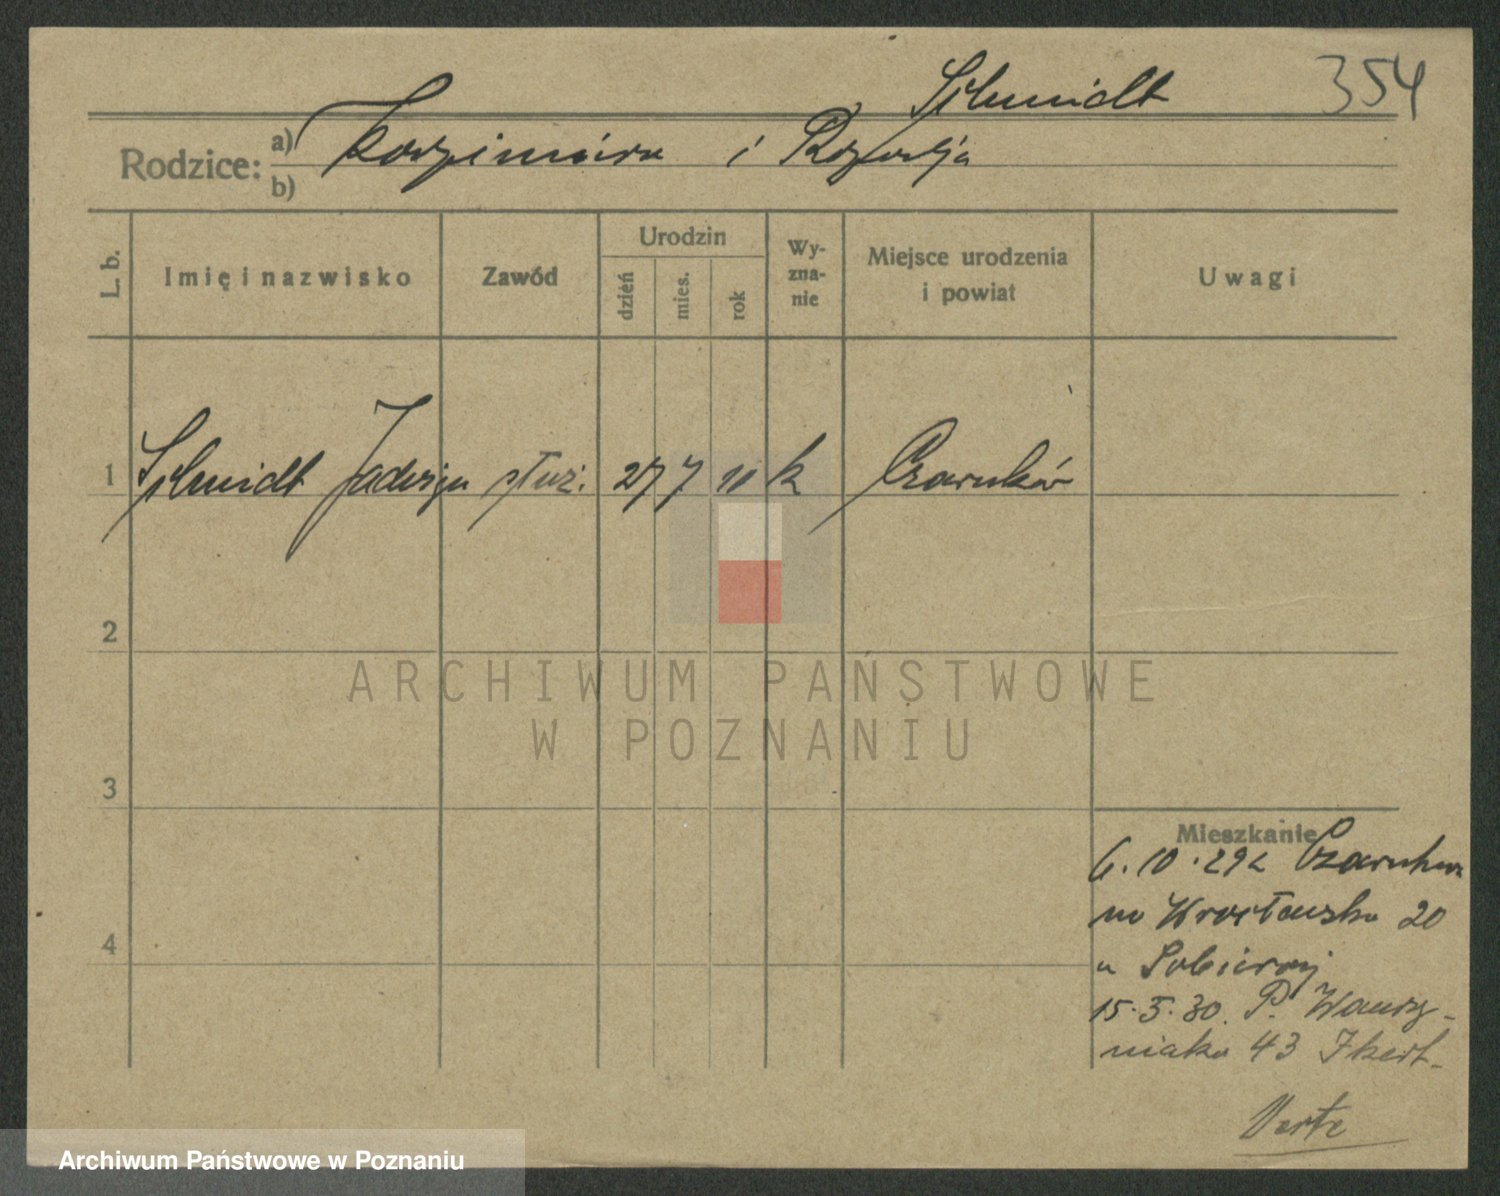 Schmidt 354
Rodzice: a) Kazimierz i Rozalja
b)
L. b. Imię i nazwisko Zawód Urodzin dzień mies. rok Wyznanie Miejsce urodzenia i powiat Uwagi
1 Schmidt Jadwiga służ. 27 7 11 k Czarnków
2
3
4
Mieszkanie
6.10.29 z Czarnkowa
na Wrocławska 20
u
15.5.30. P. Wawrzy-
niaka 43
Verte
ARCHIWUM PAŃSTWOWE
W POZNANIU
Archiwum Państwowe w Poznaniu